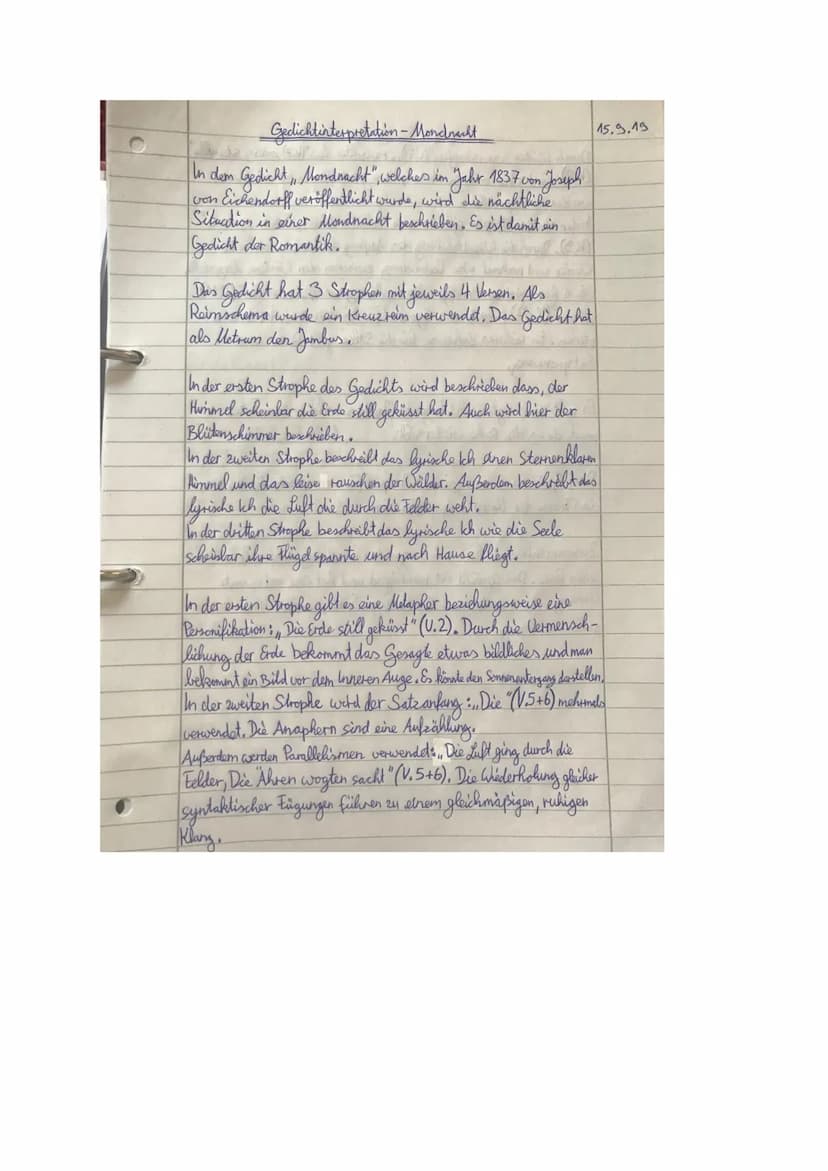 Gedichtinterpretation - Mondnacht
15.9.19
In dem Gedicht „Mondnacht", welches im Jahr 1837 von Joseph
von Eichendorff veröffentlicht wurde, wird die nächtliche
Situation in einer Mondnacht beschrieben. Es ist damit ein
Gedicht der Romantik.
Das Gedicht hat 3 Strophen mit jeweils 4 Versen. Als
Reimschema wurde ein Kreuzreim verwendet. Das Gedicht hat
als Metrum den Jambus.
In der ersten Strophe des Gedichts wird beschrieben dass, der
Himmel scheinbar die Erde still geküsst hat. Auch wird hier der
Blütenschimmer beschrieben.
In der zweiten Strophe beschreibt das lyrische Ich einen Sternenklaren
Himmel und das leise rauschen der Wälder. Außerdem beschreibt das
lyrische Ich die Luft die durch die Felder weht.
In der dritten Strophe beschreibt das lyrische Ich wie die Seele
scheinbar ihre Flügel spannte und nach Hause fliegt.
In der ersten Strophe gibt es eine Metapher beziehungsweise eine
Personifikation: „Die Erde still geküsst" (V.2). Durch die Vermensch-
lichung der Erde bekommt das Gesagte etwas bildliches und man
bekommt ein Bild vor dem Inneren Auge. Es könnte den Sonnenuntergang darstellen.
In der zweiten Strophe wird der Satzanfang: „Die" (V.5+6) mehrmals
verwendet. Die Anaphern sind eine Aufzählung.
Außerdem werden Parallelismen verwendet: „Die Luft ging durch die
Felder, Die Ähren wogten sacht" (V. 5+6). Die Wiederholung gleicher
syntaktischer Fügungen führen zu einem gleichmäßigen, ruhigen
Klang.